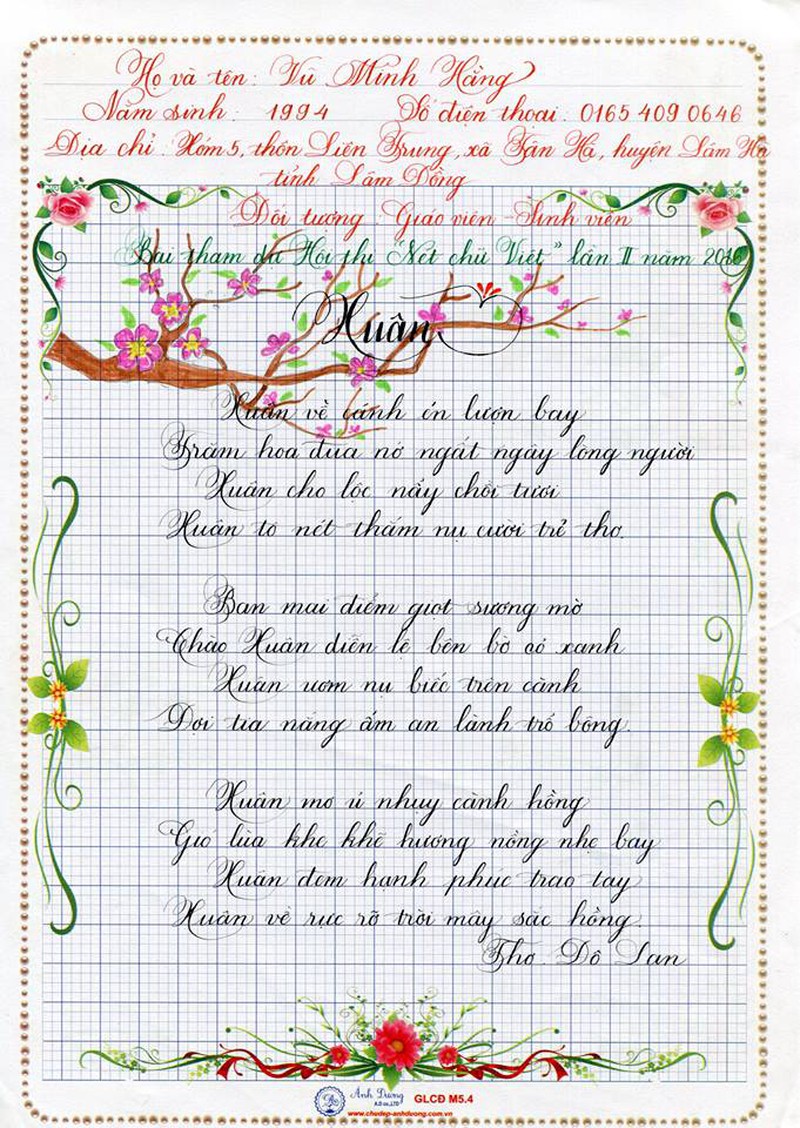 Họ và tên: Vũ Minh Hằng
Năm sinh: 1994 Số điện thoại: 0165 409 0646
Địa chỉ: Xóm 5, thôn Liên Trung, xã Tân Hà, huyện Lâm Hà
tỉnh Lâm Đồng
Đối tượng: Giáo viên - Sinh viên
Bài tham dự Hội thi "Nét chữ Việt" lần II năm 2016
Xuân
Xuân về cánh én lượn bay
Trăm hoa đua nở ngất ngây lòng người
Xuân cho lộc nảy chồi tươi
Xuân tô nét thắm nụ cười trẻ thơ.
Ban mai điểm giọt sương mờ
Chào Xuân diễn lệ bên bờ cỏ xanh
Xuân ươm nụ biếc trên cành
Đợi tia nắng ấm an lành trổ bông.
Xuân mơ ủ nhụy cành hồng
Gió lùa khe khẽ hương nồng nhẹ bay
Xuân đem hạnh phúc trao tay
Xuân về rực rỡ trời mây sắc hồng.
Thơ: Đỗ Lan
Ánh Dương
KD co.,LTD
GLCĐ M5.4
www.chudep-anhduong.com.vn